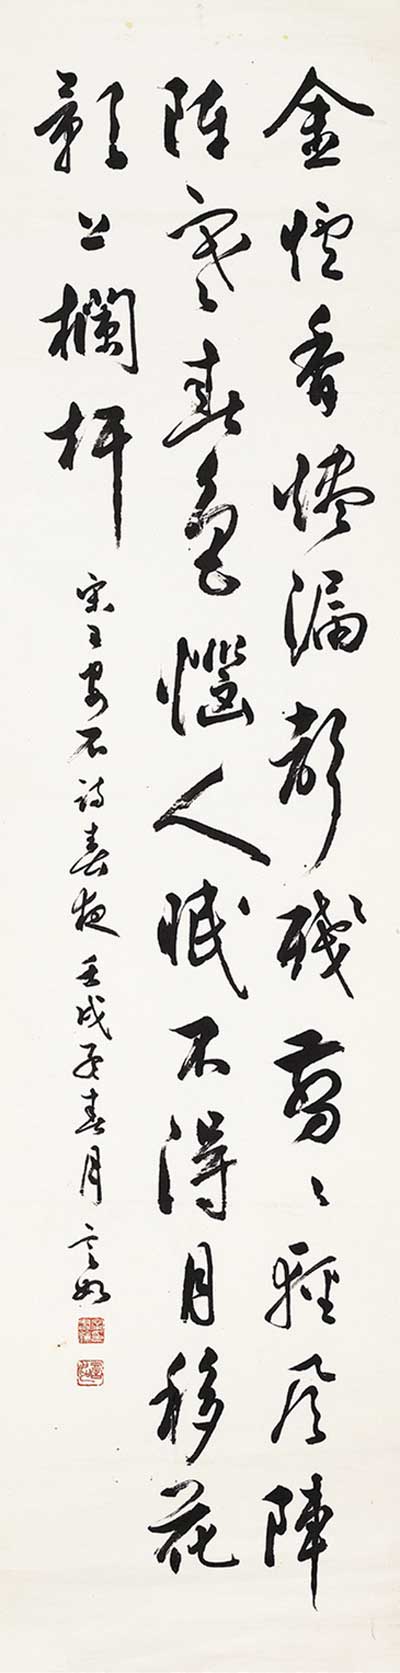 金爐香燼漏聲殘剪々輕風陣
陣寒春色惱人眠不得月移花
影上欄杆
宋王安石詩春夜 壬戌年春月